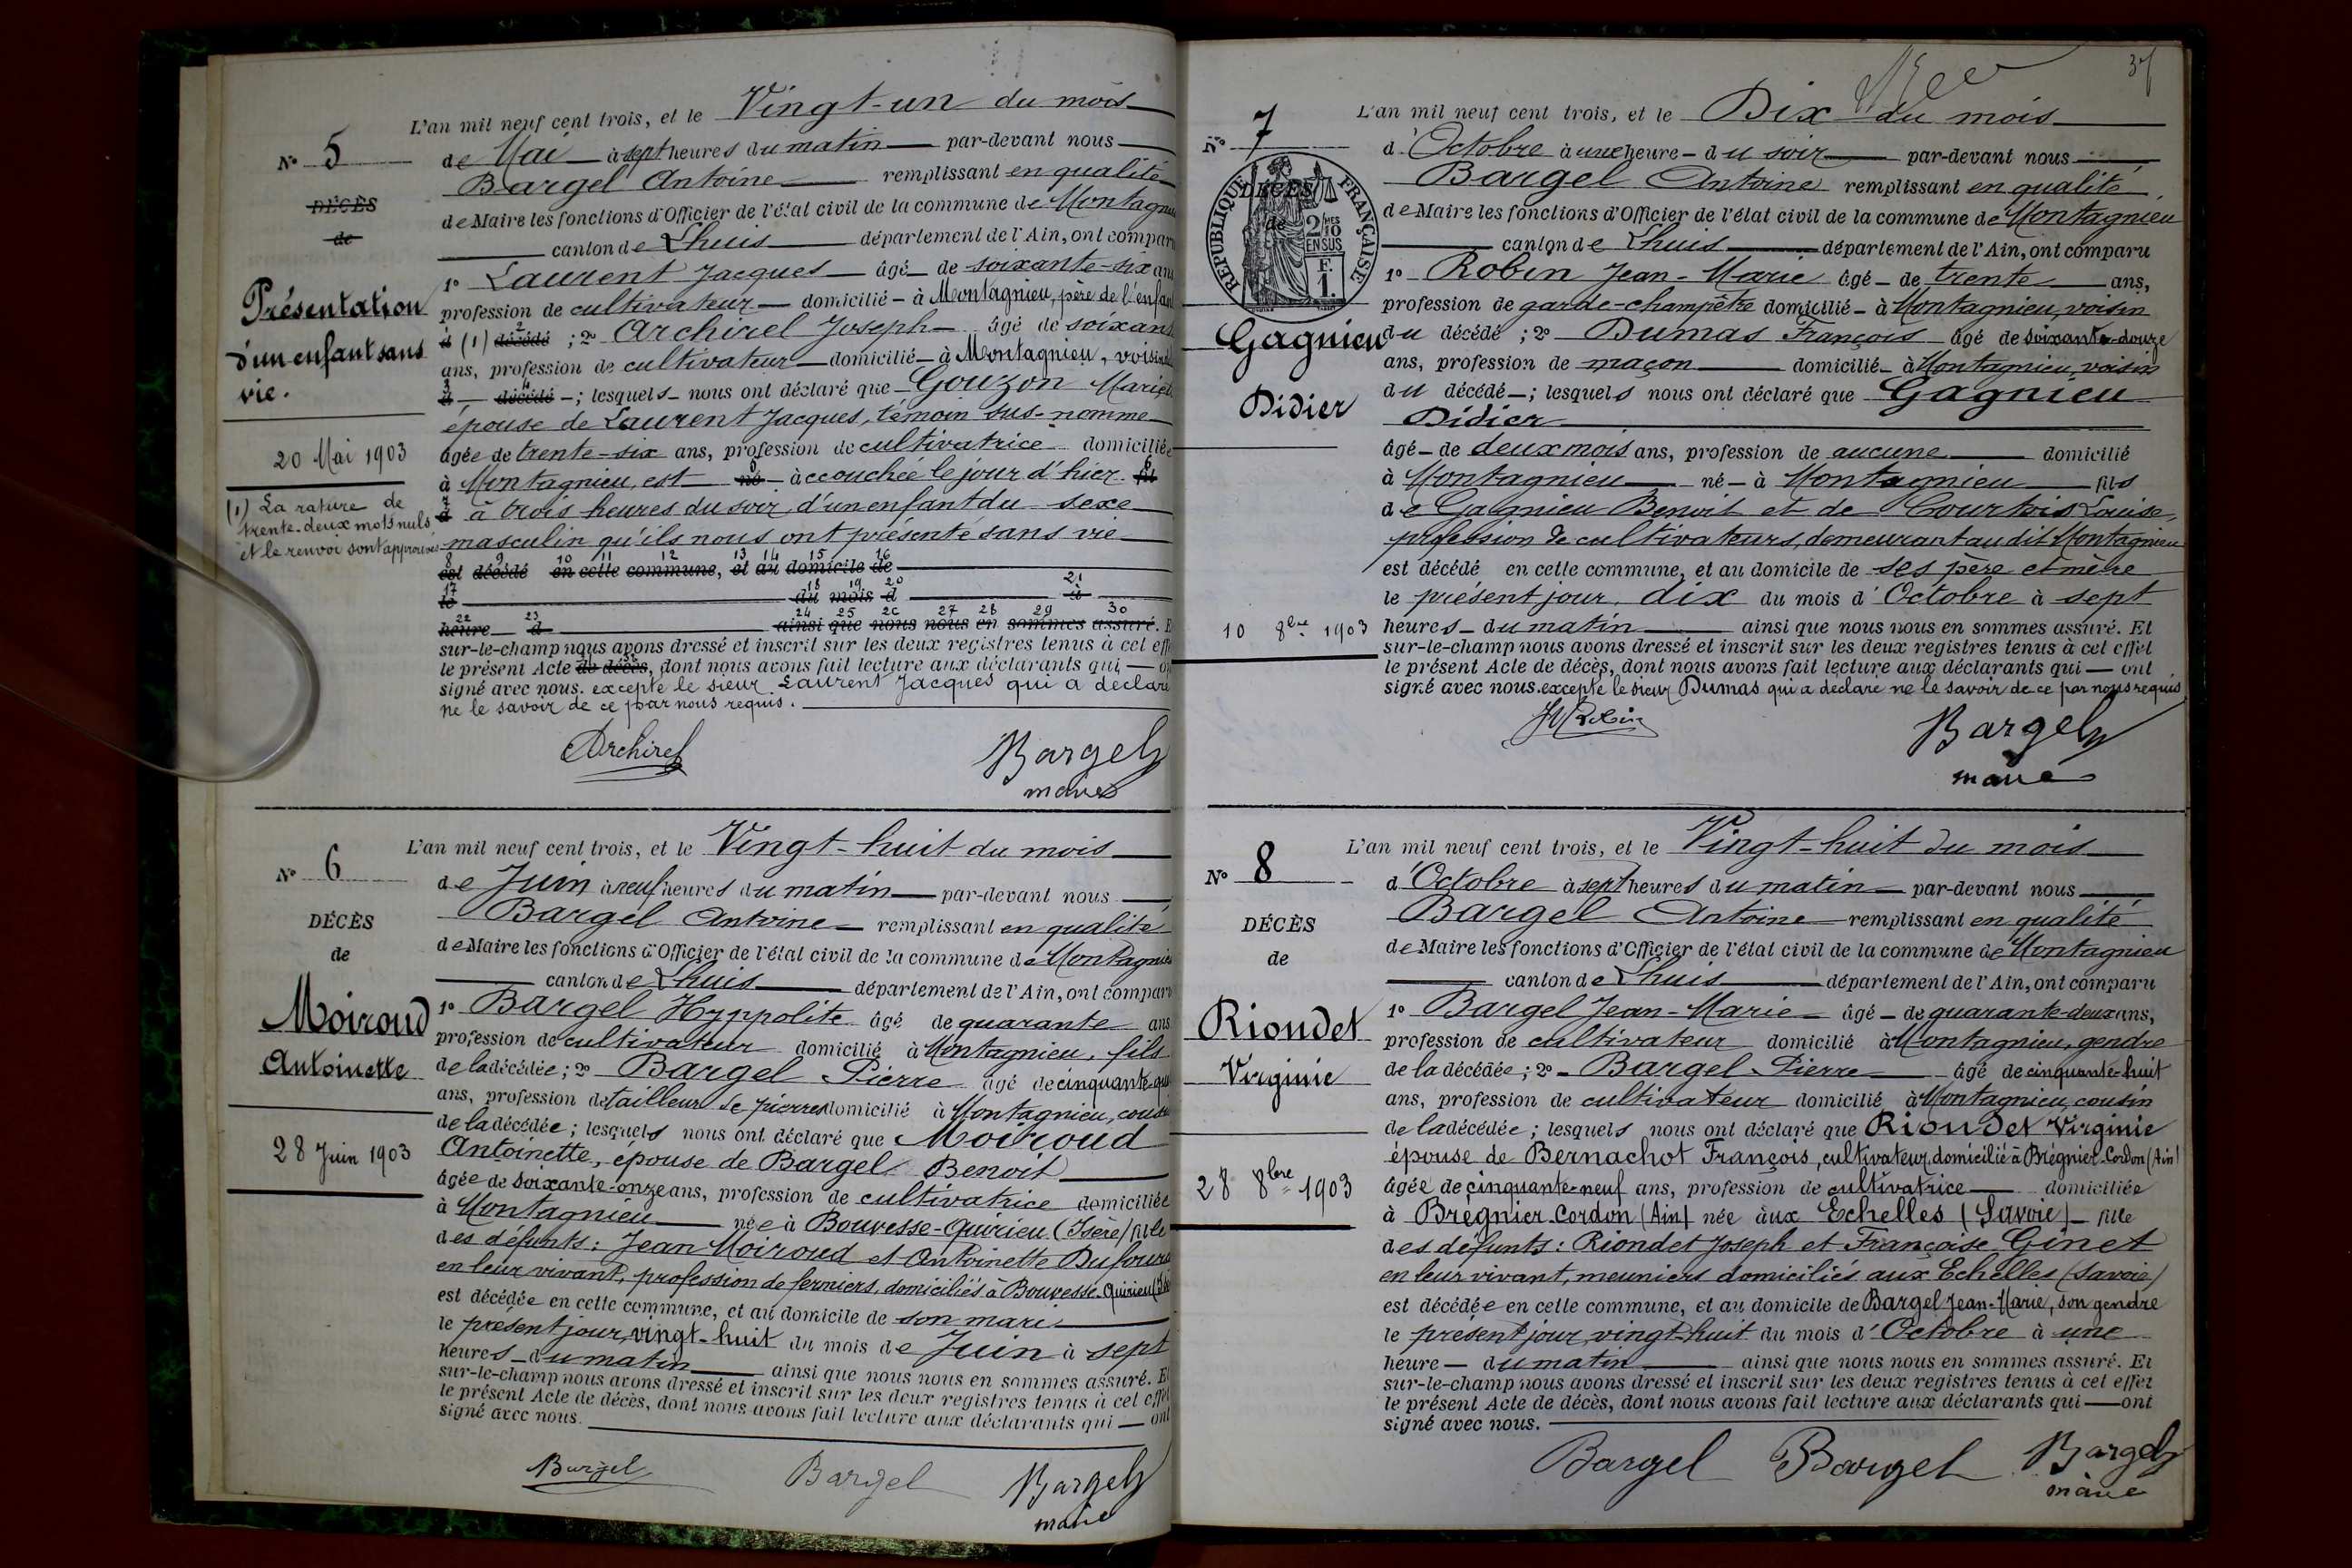 L'an mil neuf cent trois, et le Vingt-un du mois
N° 5
de Mai à sept heures du matin par-devant nous
Bargel Antoine remplissant en qualité
DÉCÈS
de Maire les fonctions d'Officier de l'état civil de la commune de Montagnieu
de
canton de Lhuis département de l'Ain, ont comparu
1° Laurent Jacques âgé de soixante-six ans
Présentation
profession de cultivateur domicilié à Montagnieu, père de l'enfant
(1) décédé ; 2° Archirel Joseph âgé de soixante
d'un enfant sans
ans, profession de cultivateur domicilié à Montagnieu, voisin
vie.
décédé ; lesquels nous ont déclaré que Gouzon Marie
épouse de Laurent Jacques, témoin sus-nommé
20 Mai 1903
âgée de trente-six ans, profession de cultivatrice domiciliée
à Montagnieu, est né accouchée le jour d'hier fil
(1) La rature de
trente-deux mots nuls
et le renvoi sont approuvés
à trois heures du soir, d'un enfant du sexe
masculin qu'ils nous ont présenté sans vie
8 9 10 11 12 13 14 15 16
est décédé en cette commune, et au domicile de
17 18 19 20 21
le du mois d à
22 23 24 25 26 27 28 29 30
heure d ainsi que nous nous en sommes assuré. Et
sur-le-champ nous avons dressé et inscrit sur les deux registres tenus à cet effet
le présent Acte de décès, dont nous avons fait lecture aux déclarants qui ont
signé avec nous. excepté le sieur Laurent Jacques qui a déclaré
ne le savoir de ce par nous requis.
Archirel Bargel
maire
L'an mil neuf cent trois, et le Vingt-huit du mois
N° 6
de Juin à neuf heures du matin par-devant nous
Bargel Antoine remplissant en qualité
DÉCÈS
de Maire les fonctions d'Officier de l'état civil de la commune de Montagnieu
de
canton de Lhuis département de l'Ain, ont comparu
Moiroud
1° Bargel Hyppolite âgé de quarante ans
profession de cultivateur domicilié à Montagnieu, fils
Antoinette
de la décédée ; 2° Bargel Pierre âgé de cinquante-
ans, profession de tailleur de pierres domicilié à Montagnieu, cousin
de la décédée ; lesquels nous ont déclaré que Moiroud
28 Juin 1903
Antoinette, épouse de Bargel Benoit
âgée de soixante-onze ans, profession de cultivatrice domiciliée
à Montagnieu née à Bouvesse-Quirieu (Isère) fille
des défunts : Jean Moiroud et Antoinette Dufour
en leur vivant, profession de fermiers, domiciliés à Bouvesse-Quirieu
est décédée en cette commune, et au domicile de son mari
le présent jour, vingt-huit du mois de Juin à sept
heures du matin ainsi que nous nous en sommes assuré. Et
sur-le-champ nous avons dressé et inscrit sur les deux registres tenus à cet effet
le présent Acte de décès, dont nous avons fait lecture aux déclarants qui ont
signé avec nous.
Bargel Bargel Bargel
maire
37
L'an mil neuf cent trois, et le Dix du mois
N° 7
d'Octobre à une heure du soir par-devant nous
Bargel Antoine remplissant en qualité
RÉPUBLIQUE FRANÇAISE
DÉCÈS
de
2/10 MES
EN SUS
F.
1.
de Maire les fonctions d'Officier de l'état civil de la commune de Montagnieu
canton de Lhuis département de l'Ain, ont comparu
1° Robin Jean-Marie âgé de trente ans,
profession de garde-champêtre domicilié à Montagnieu, voisin
Gagnieu
du décédé ; 2° Dumas François âgé de soixante-douze
ans, profession de maçon domicilié à Montagnieu, voisin
Didier
du décédé ; lesquels nous ont déclaré que Gagnieu
Didier
âgé de deux mois ans, profession de aucune domicilié
à Montagnieu né à Montagnieu fils
de Gagnieu Benoit et de Courtois Louise,
profession de cultivateurs, demeurant audit Montagnieu
est décédé en cette commune, et au domicile de ses père et mère
le présent jour, dix du mois d'Octobre à sept
10 8bre 1903
heures du matin ainsi que nous nous en sommes assuré. Et
sur-le-champ nous avons dressé et inscrit sur les deux registres tenus à cet effet
le présent Acte de décès, dont nous avons fait lecture aux déclarants qui ont
signé avec nous. excepté le sieur Dumas qui a déclaré ne le savoir de ce par nous requis
JM Robin Bargel
maire
L'an mil neuf cent trois, et le Vingt-huit du mois
N° 8
d'Octobre à sept heures du matin par-devant nous
Bargel Antoine remplissant en qualité
DÉCÈS
de Maire les fonctions d'Officier de l'état civil de la commune de Montagnieu
de
canton de Lhuis département de l'Ain, ont comparu
1° Bargel Jean-Marie âgé de quarante-deux ans,
Riondet
profession de cultivateur domicilié à Montagnieu, gendre
Virginie
de la décédée ; 2° Bargel Pierre âgé de cinquante-huit
ans, profession de cultivateur domicilié à Montagnieu, cousin
de la décédée ; lesquels nous ont déclaré que Riondet Virginie
épouse de Bernachot François, cultivateur, domicilié à Brégnier-Cordon (Ain)
28 8bre 1903
âgée de cinquante-neuf ans, profession de cultivatrice domiciliée
à Brégnier-Cordon (Ain) née aux Echelles (Savoie) fille
des défunts : Riondet Joseph et Françoise Ginet
en leur vivant, meuniers domiciliés aux Echelles (Savoie)
est décédée en cette commune, et au domicile de Bargel Jean-Marie, son gendre
le présent jour, vingt-huit du mois d'Octobre à une
heure du matin ainsi que nous nous en sommes assuré. Et
sur-le-champ nous avons dressé et inscrit sur les deux registres tenus à cet effet
le présent Acte de décès, dont nous avons fait lecture aux déclarants qui ont
signé avec nous.
Bargel Bargel Bargel
maire